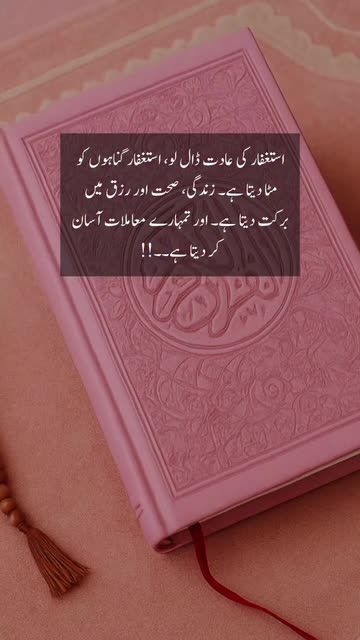 استغفار کی عادت ڈال لو، استغفار گناہوں کو
مٹا دیتا ہے۔ زندگی، صحت اور رزق میں
برکت دیتا ہے۔ اور تمہارے معاملات آسان
کر دیتا ہے۔۔!!
القرآن الكريم